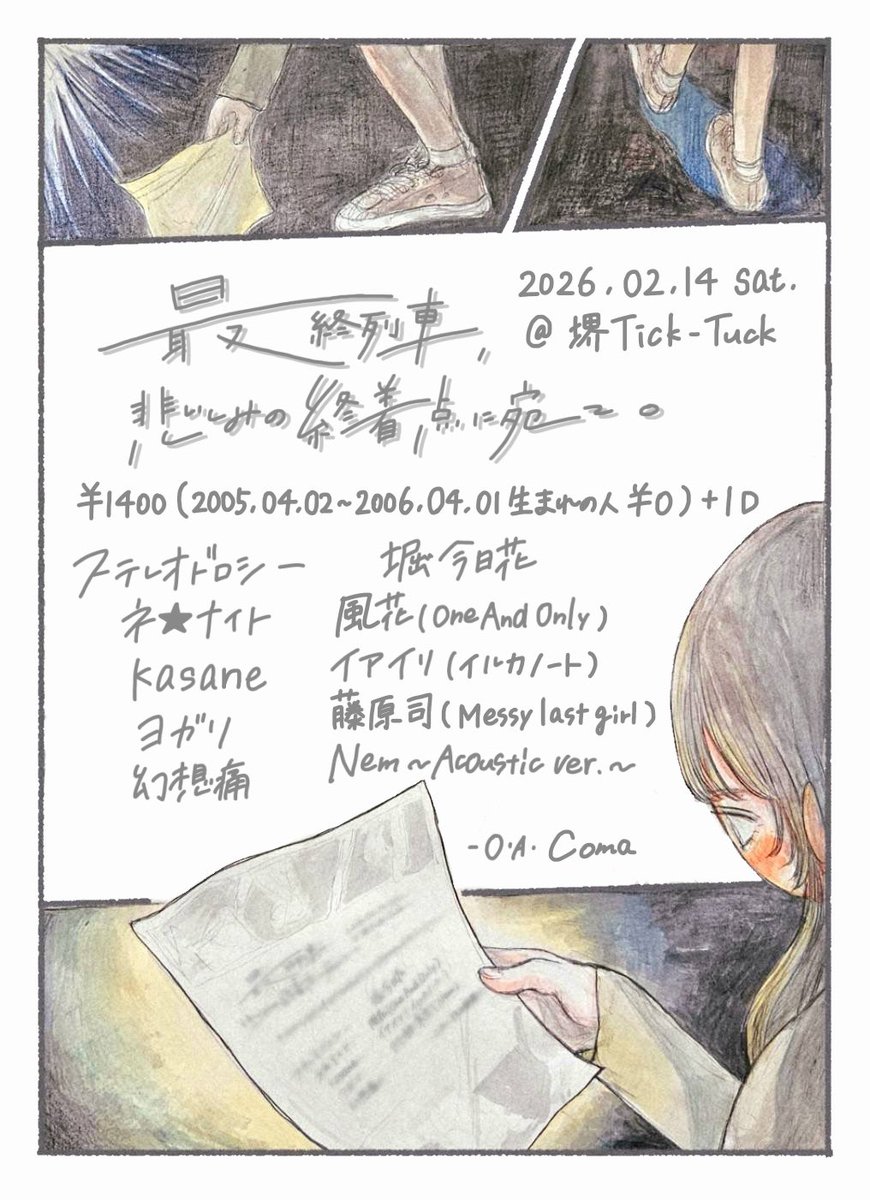 最終列車、
悲しみの終着点に宛てて。
2026.02.14 sat.
@ 堺Tick-Tuck
¥1400(2005.04.02~2006.04.01生まれの人 ¥0)+1D
ステレオドロシー
ネ★ナイト
kasane
ヨガリ
幻想痛
堀 今日花
風花(One And Only)
イアイリ(イルカノート)
藤原司(Messy last girl)
Nem~Acoustic ver.~
-O.A. Coma